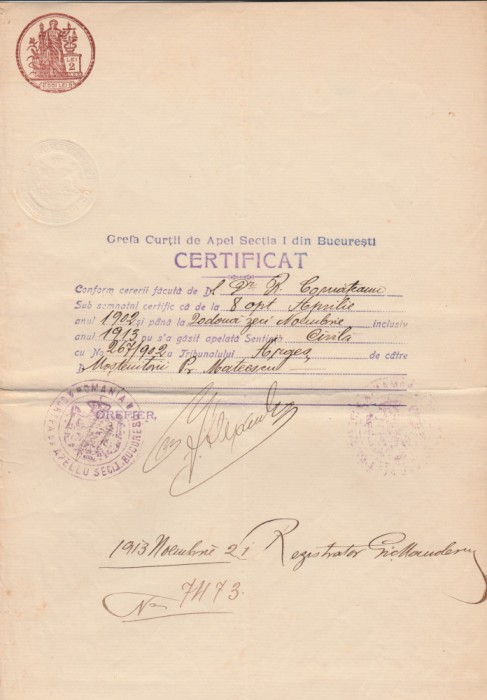 LEI
2
Grefa Curții de Apel Secția I din București
CERTIFICAT
Conform cererii făcută de D-l Dr. R.
Sub semnatul certific că de la 8 opt Aprilie
anul 1902 și până la Noembrie inclusiv
anul 1913 nu s'a găsit apelată Sentința Civila
cu No 267/902 a Tribunalului Argeș de către
Moștenitorii Pr. Mateescu
GREFIER,
ROMANIA
CURTEA DE APELLU SECȚ. I. BUCURESCI
1913 Noembrie 21 Registrator
No 7473.